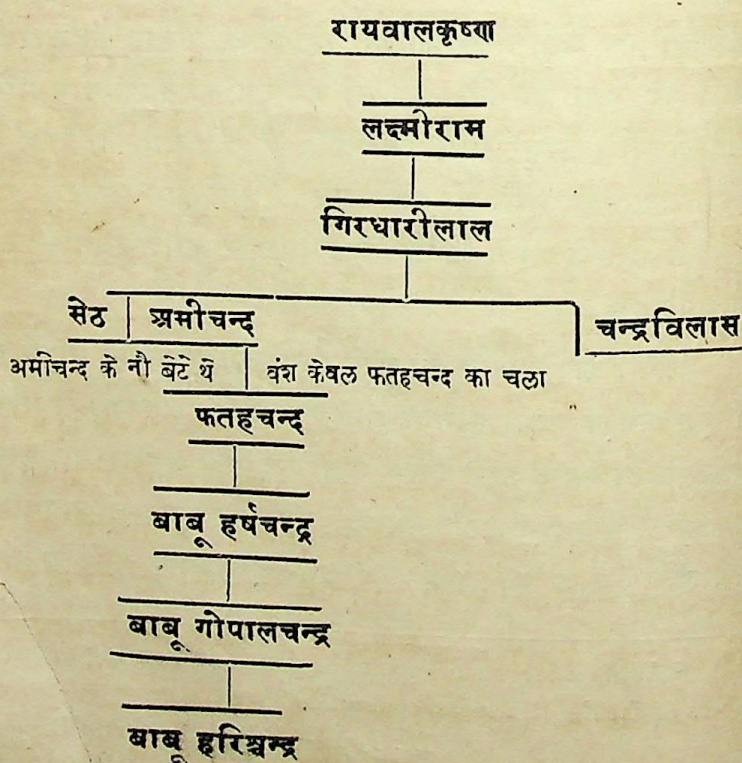 रायवालकृष्ण
लक्ष्मीराम
गिरधारीलाल
सेठ अमीचन्द चन्द्रविलास
अमीचन्द के नौ बेटे थे वंश केवल फतहचन्द का चला
फतहचन्द
बाबू हर्षचन्द्र
बाबू गोपालचन्द्र
बाबू हरिश्चन्द्र